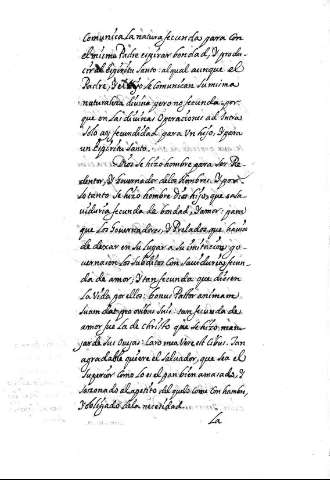 Comunica la natura fecunda para con
el misma Padre espirar bondad, y produ-
cir el Espiritu Santo: al qual aunque el
Padre, y el Hijo se comunican su misma
naturaleza divina pero no fecunda: por-
que en las divinas Operaciones ad Intra
solo ay fecundidad para Un hijo, y para
un Espiritu Santo.
Dios se hizo hombre para ser Re-
dentor, y Governador de los hombres, y por
lo tanto se hizo hombre Dios hijo, que es sa-
viduria fecunda de bondad, y amor: para
que los Governadores, y Prelados que havia
de dexar en su lugar a su imitacion go-
vernasen los subditos con saviduria fecun-
da de amor, y tan fecunda que diesen
la Vida por ellos: bonus Pastor animam
suam dat pro ovibus suis: tan fecunda de
amor fue la de Christo que se hizo man-
jar de sus Ovejas: Caro mea Vere est Cibus. Tan
agradable quiere el Salvador, que sea el
Superior como lo es el pan bien amasado, y
sazonado al apetito del que lo come con hambre,
y obligado de la necesidad.
La